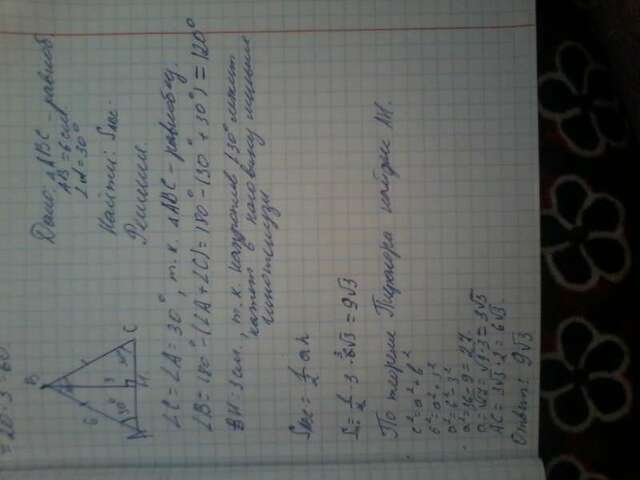 = 20 · 3 = 60.
B
6
3
30°
30°
A
H
C
Дано: △ABC – равноб.
AB = 6 см
∠A = 30°
Найти: S_ABC.
Решение.
∠C = ∠A = 30°, т.к. △ABC – равнобед.
∠B = 180° – (∠A + ∠C) = 180° – (30° + 30°) = 120°
BH = 3 см., т.к. напротив ∠30° лежит
катет в половину меньше
гипотенузы
S_ABC = 1/2 ah
S = 1/2 · 3 · 6√3 = 9√3
По теореме Пифагора найдем AH.
c² = a² + b²
6² = a² + 3²
a² = 6² – 3²
a² = 36 – 9 = 27.
a = √27 = √9·3 = 3√3
AC = 3√3 · 2 = 6√3.
Ответ: 9√3